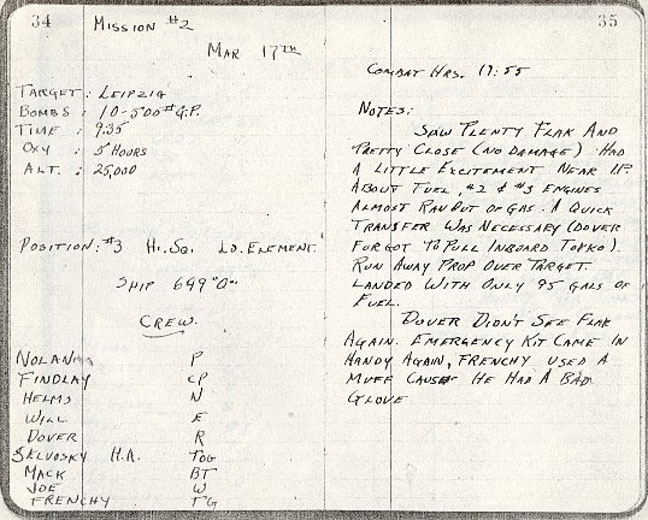 34
Mission #2
Mar 17th
Target: Leipzig
Bombs: 10-500# G.P.
Time: 9:35
Oxy: 5 Hours
Alt.: 25,000
Position: #3 Hi. Sq. Ld. Element
Ship 699 "O"
Crew.
Nolan P
Findlay CP
Helms N
Will E
Dover R
Selvosky H.A. Tog
Mack BT
Joe W
Frenchy TG
35
Combat Hrs. 17:55
Notes:
Saw Plenty Flak And
Pretty Close (No Damage) Had
A Little Excitement Near I.P.
About Fuel, #2 & #3 Engines
Almost Ran Out Of Gas. A Quick
Transfer Was Necessary (Dover
Forgot To Pull Inboard Tokyo).
Run Away Prop Over Target.
Landed With Only 95 Gals Of
Fuel.
Dover Didn't See Flak
Again. Emergency Kit Came In
Handy Again, Frenchy Used A
Muff Cause He Had A Bad
Glove